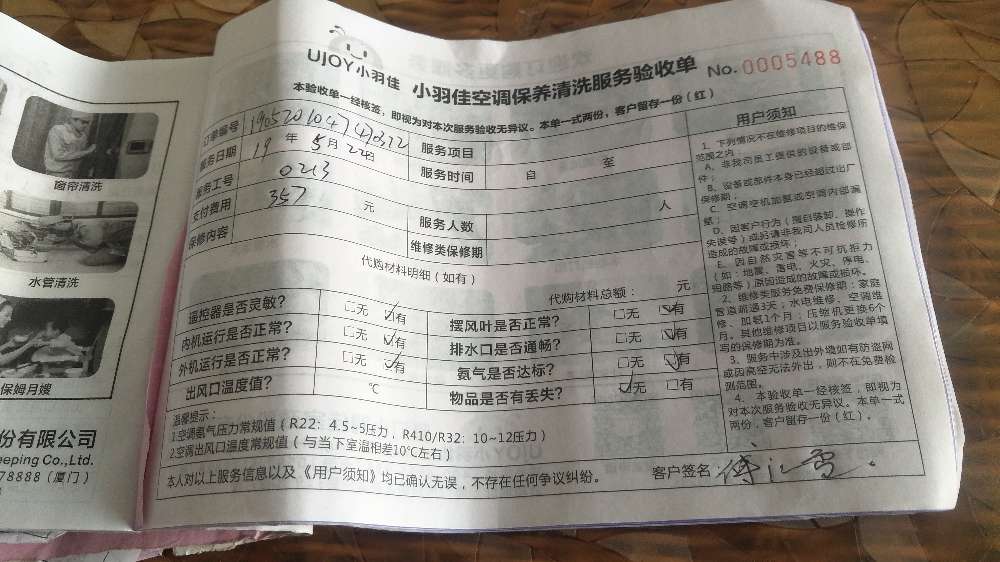 UJOY小羽佳
小羽佳空调保养清洗服务验收单
No.0005488
本验收单一经核签，即视为对本次服务验收无异议。本单一式两份，客户留存一份（红）
订单编号
服务项目
服务日期 19 年 5 月 22日 服务时间 自 至
服务工号 0213
支付费用 357 元 服务人数 人
保修内容 维修类保修期
代购材料明细（如有）
代购材料总额： 元
遥控器是否灵敏？ □无 □有 摆风叶是否正常？ □无 □有
内机运行是否正常？ □无 □有 排水口是否通畅？ □无 □有
外机运行是否正常？ □无 □有 氨气是否达标？ □无 □有
出风口温度值？ ℃ 物品是否有丢失？ □无 □有
温馨提示：
1.空调氨气压力常规值（R22：4.5~5压力，R410/R32：10~12压力）
2.空调出风口温度常规值（与当下室温相差10℃左右）
本人对以上服务信息以及《用户须知》均已确认无误，不存在任何争议纠纷。
客户签名
用户须知
1、下列情况不在维修项目的维保
范围之内：
A、非我司员工提供的设备或部
件；
B、设备或部件本身已经超过出厂
保修期；
C、空调空机加氨或空调内部漏
氨；
D、因客户行为（擅自装卸、操作
失误等）或好请非我司人员检修所
造成的故障或损坏；
E、因自然灾害等不可抗拒力
（如：地震、雷电、火灾、停电、
短路等）原因造成的故障或损坏。
2、维修类服务免费保修期：家庭
管道疏通3天；水电维修、空调维
修、加氨1个月；压缩机更换6个
月。其他维修项目以服务验收单填
写的保修期为准。
3、服务中涉及出外墙如有防盗网
或因高空无法外出，则不在免费检
测范围。
4、本验收单一经核签，即视为
对本次服务验收无异议。本单一式
两份，客户留存一份（红）。
窗帘清洗
水管清洗
保姆月嫂
份有限公司
eeping Co.,Ltd.
78888（厦门）